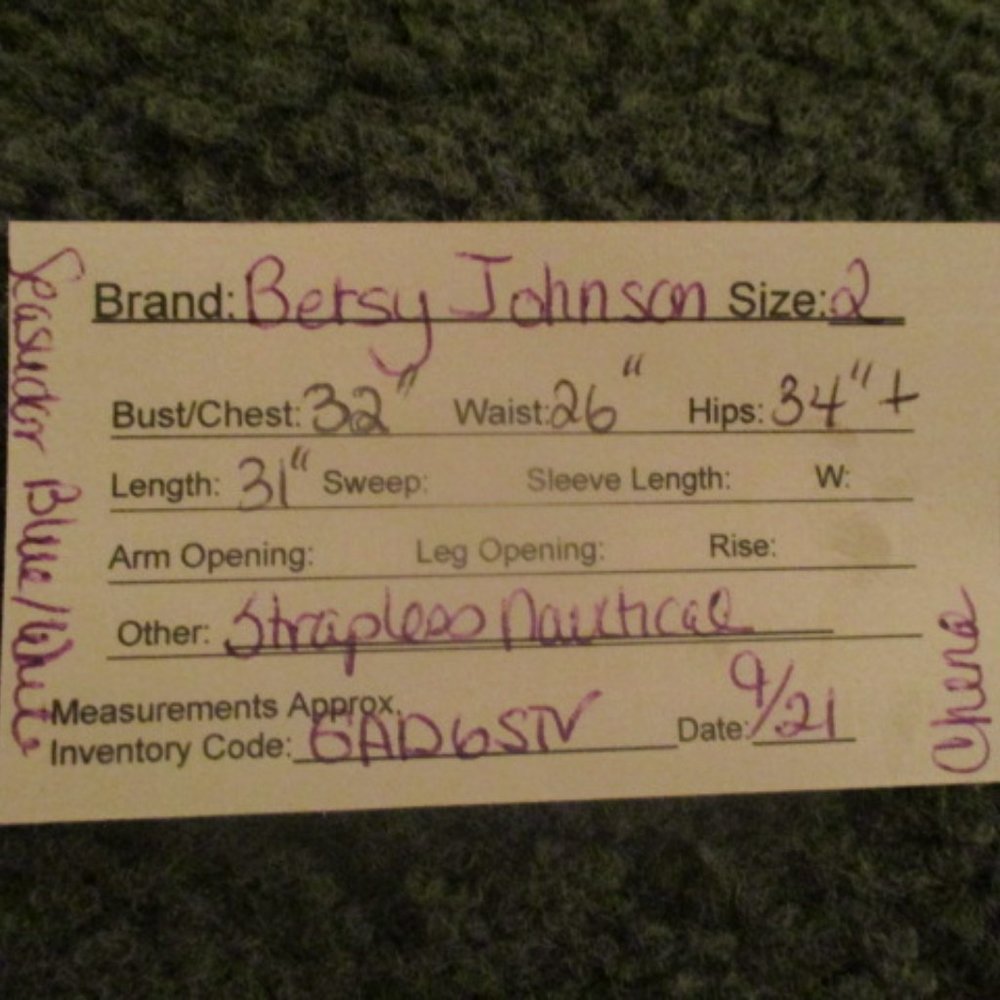 Brand: Betsy Johnson Size: 2
Bust/Chest: 32" Waist: 26" Hips: 34"+
Length: 31" Sweep: Sleeve Length: W:
Arm Opening: Leg Opening: Rise:
Other: Strapless Nautical
Measurements Approx.
Inventory Code: GAD6STV Date: 9/21
Blue/White
China